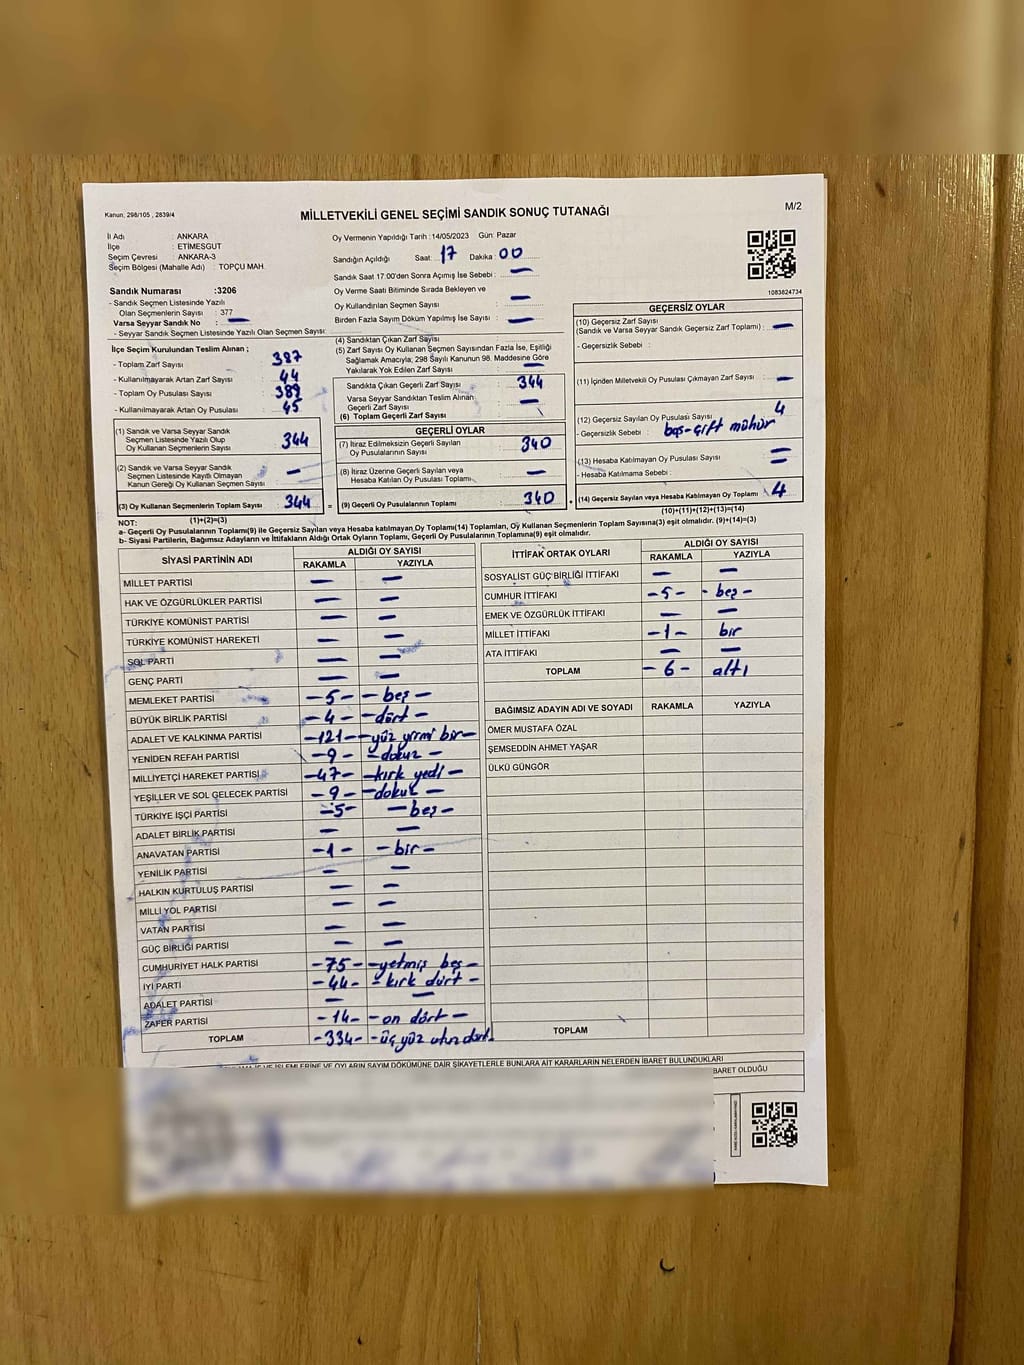 Kanun; 298/105 , 2839/4
MİLLETVEKİLİ GENEL SEÇİMİ SANDIK SONUÇ TUTANAĞI
M/2
İl Adı : ANKARA
İlçe : ETİMESGUT
Seçim Çevresi : ANKARA-3
Seçim Bölgesi (Mahalle Adı) : TOPÇU MAH.
Oy Vermenin Yapıldığı Tarih :14/05/2023 Gün: Pazar
Sandığın Açıldığı Saat: 17 Dakika: 00
Sandık Saat 17:00'den Sonra Açımış İse Sebebi : —
Oy Verme Saati Bitiminde Sırada Bekleyen ve
Oy Kullandırılan Seçmen Sayısı : —
Birden Fazla Sayım Döküm Yapılmış İse Sayısı : —
1083824734
Sandık Numarası :3206
- Sandık Seçmen Listesinde Yazılı
Olan Seçmenlerin Sayısı : 377
Varsa Seyyar Sandık No : —
- Seyyar Sandık Seçmen Listesinde Yazılı Olan Seçmen Sayısı:
İlçe Seçim Kurulundan Teslim Alınan ;
- Toplam Zarf Sayısı : 387
- Kullanılmayarak Artan Zarf Sayısı : 44
- Toplam Oy Pusulası Sayısı : 389
- Kullanılmayarak Artan Oy Pusulası : 45
(1) Sandık ve Varsa Seyyar Sandık
Seçmen Listesinde Yazılı Olup
Oy Kullanan Seçmenlerin Sayısı : 344
(2) Sandık ve Varsa Seyyar Sandık
Seçmen Listesinde Kayıtlı Olmayan
Kanun Gereği Oy Kullanan Seçmen Sayısı : —
(3) Oy Kullanan Seçmenlerin Toplam Sayısı : 344
(1)+(2)=(3)
(4) Sandıktan Çıkan Zarf Sayısı :
(5) Zarf Sayısı Oy Kullanan Seçmen Sayısından Fazla İse, Eşitliği
Sağlamak Amacıyla; 298 Sayılı Kanunun 98. Maddesine Göre
Yakılarak Yok Edilen Zarf Sayısı : —
Sandıkta Çıkan Geçerli Zarf Sayısı : 344
Varsa Seyyar Sandıktan Teslim Alınan
Geçerli Zarf Sayısı : —
(6) Toplam Geçerli Zarf Sayısı :
GEÇERLİ OYLAR
(7) İtiraz Edilmeksizin Geçerli Sayılan
Oy Pusulasının Toplamı : 340
(8) İtiraz Üzerine Geçerli Sayılan veya
Hesaba Katılan Oy Pusulası Toplamı : —
= (9) Geçerli Oy Pusulalarının Toplamı : 340
GEÇERSİZ OYLAR
(10) Geçersiz Zarf Sayısı
(Sandık ve Varsa Seyyar Sandık Geçersiz Zarf Toplamı) : —
- Geçersizlik Sebebi :
(11) İçinden Milletvekili Oy Pusulası Çıkmayan Zarf Sayısı : —
(12) Geçersiz Sayılan Oy Pusulası Sayısı : 4
- Geçersizlik Sebebi : boş-çift mühür
(13) Hesaba Katılmayan Oy Pusulası Sayısı : —
- Hesaba Katılmama Sebebi : —
+ (14) Geçersiz Sayılan veya Hesaba Katılmayan Oy Toplamı : 4
(10)+(11)+(12)+(13)=(14)
NOT:
a- Geçerli Oy Pusulalarının Toplamı(9) ile Geçersiz Sayılan veya Hesaba katılmayan Oy Toplamı(14) Toplamları, Oy Kullanan Seçmenlerin Toplam Sayısına(3) eşit olmalıdır. (9)+(14)=(3)
b- Siyasi Partilerin, Bağımsız Adayların ve İttifakların Aldığı Ortak Oyların Toplamı, Geçerli Oy Pusulalarının Toplamına(9) eşit olmalıdır.
SİYASİ PARTİNİN ADI ALDIĞI OY SAYISI
RAKAMLA YAZIYLA
MİLLET PARTİSİ — —
HAK VE ÖZGÜRLÜKLER PARTİSİ — —
TÜRKİYE KOMÜNİST PARTİSİ — —
TÜRKİYE KOMÜNİST HAREKETİ — —
SOL PARTİ — —
GENÇ PARTİ — —
MEMLEKET PARTİSİ -5- -beş-
BÜYÜK BİRLİK PARTİSİ -4- -dört-
ADALET VE KALKINMA PARTİSİ -121- -yüz yirmi bir-
YENİDEN REFAH PARTİSİ -9- -dokuz-
MİLLİYETÇİ HAREKET PARTİSİ -47- -kırk yedi-
YEŞİLLER VE SOL GELECEK PARTİSİ -9- -dokuz-
TÜRKİYE İŞÇİ PARTİSİ -5- -beş-
ADALET BİRLİK PARTİSİ — —
ANAVATAN PARTİSİ -1- -bir-
YENİLİK PARTİSİ — —
HALKIN KURTULUŞ PARTİSİ — —
MİLLİ YOL PARTİSİ — —
VATAN PARTİSİ — —
GÜÇ BİRLİĞİ PARTİSİ — —
CUMHURİYET HALK PARTİSİ -75- -yetmiş beş-
İYİ PARTİ -44- -kırk dört-
ADALET PARTİSİ — —
ZAFER PARTİSİ -14- -on dört-
TOPLAM -334- -üç yüz otuz dört-
İTTİFAK ORTAK OYLARI ALDIĞI OY SAYISI
RAKAMLA YAZIYLA
SOSYALİST GÜÇ BİRLİĞİ İTTİFAKI — —
CUMHUR İTTİFAKI -5- -beş-
EMEK VE ÖZGÜRLÜK İTTİFAKI — —
MİLLET İTTİFAKI -1- bir
ATA İTTİFAKI — —
TOPLAM -6- altı
BAĞIMSIZ ADAYIN ADI VE SOYADI RAKAMLA YAZIYLA
ÖMER MUSTAFA ÖZAL
ŞEMSEDDİN AHMET YAŞAR
ÜLKÜ GÜNGÖR
TOPLAM
İŞLEMLERİNE VE OYLARIN SAYIM DÖKÜMÜNE DAİR ŞİKAYETLERLE BUNLARA AİT KARARLARIN NELERDEN İBARET BULUNDUKLARI
BARET OLDUĞU